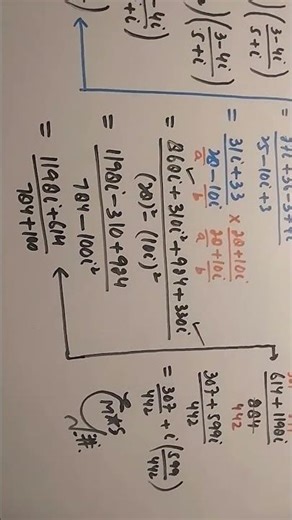 (3-4i/5+i)
(3-4i/5+i)
25-10i+3
= 31i+33/28-10i × 28+10i/28+10i
a b a b
= 868i+310i²+924+330i/(28)²-(10i)²
= 1198i-310+924/784-100i²
= 1198i+614/784+100
614+1198i/884
442
307+599i/442
= 307/442 + i(599/442)